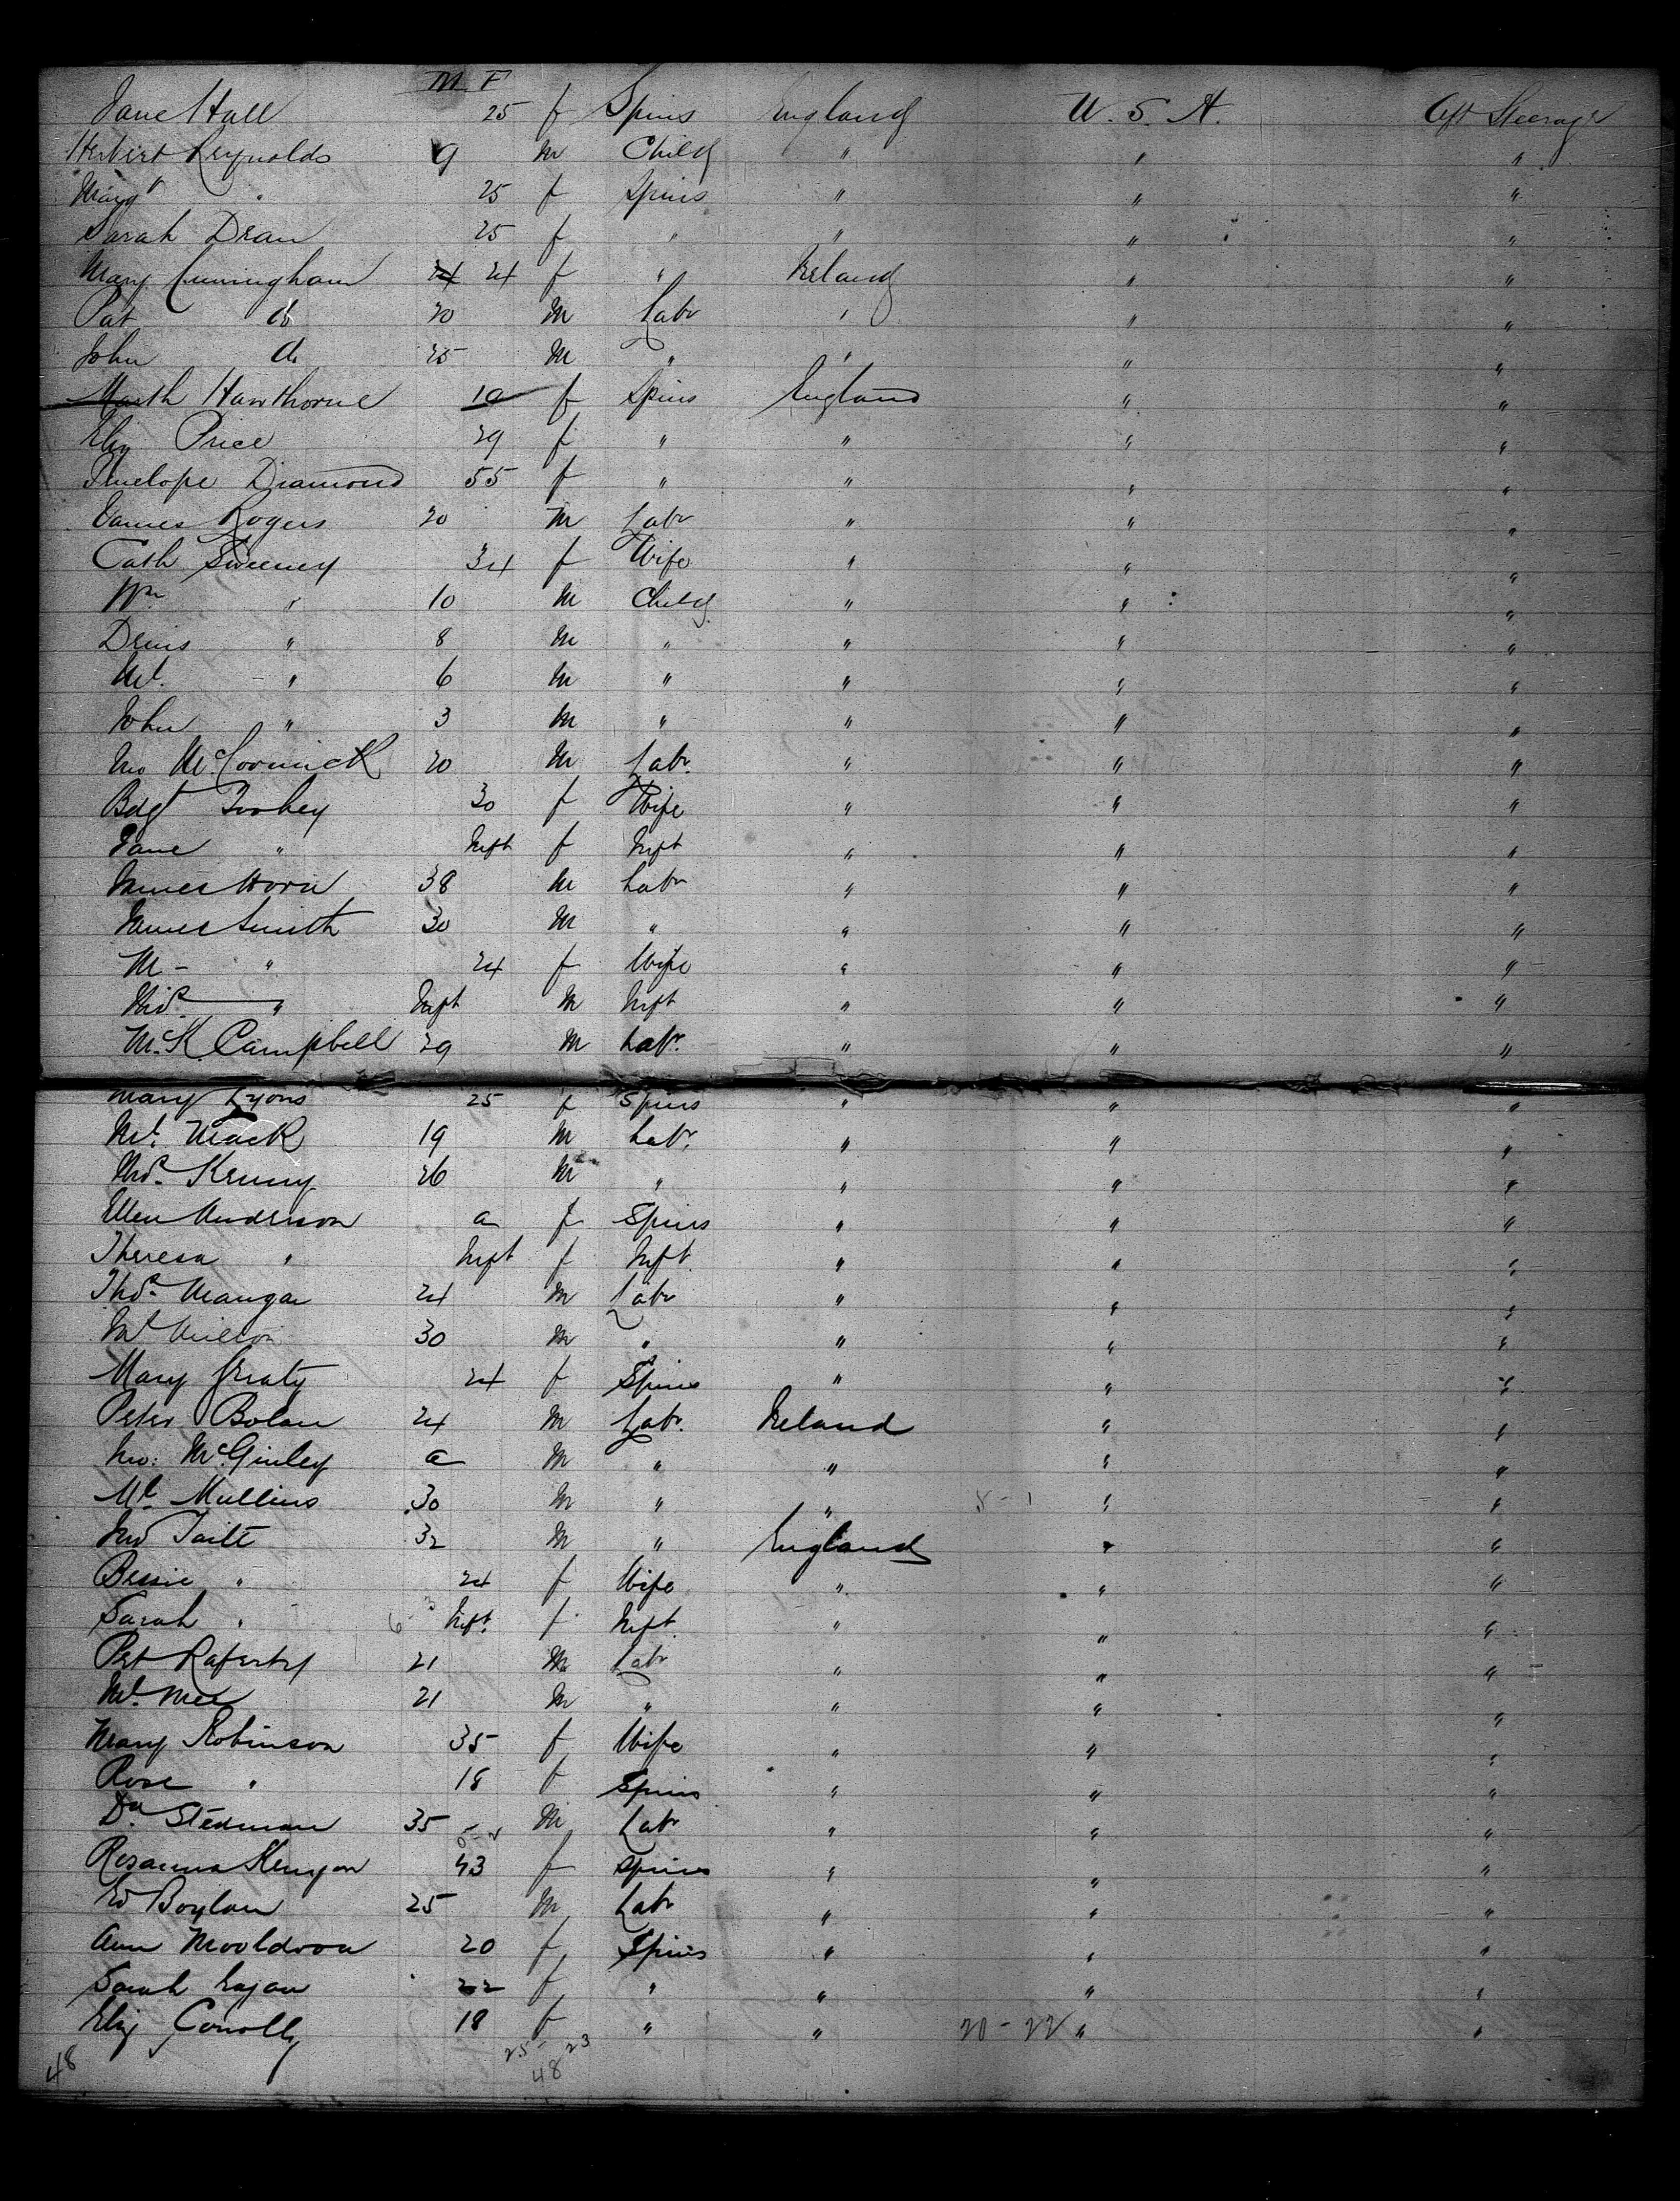 M F
Jane Hall 25 f Spins England U. S. A. Aft Steerage
Herbert Reynolds 9 m Child " " "
Margt " 25 f Spins " " "
Sarah Dean 25 f " " " "
Mary Cunningham 24 24 f " Ireland " "
Pat do 20 M Labr " " "
John do 25 M " " " "
Marth Hawthorne 19 f Spins England " "
Eliz Price 29 f " " " "
Penelope Diamond 55 f " " " "
James Rogers 20 M Labr " " "
Cath Sweeney 34 f Wife " " "
Wm " 10 M Child " " "
Denis " 8 M " " " "
Ml. " 6 M " " " "
John " 3 M " " " "
Jno McCormick 20 M Labr. " " "
Bdgt Toohey 30 f Wife " " "
Jane " Inft f Inft " " "
James Horn 38 M Labr " " "
James Smith 30 M " " " "
M - " 24 f Wife " " "
Thos " Inft M Inft " " "
McK. Campbell 29 M Labr. " " "
Mary Lyons 25 f Spins " " "
Ml. Mack 19 M Labr. " " "
Thos. Kenny 26 M " " " "
Ellen Anderson a f Spins " " "
Theresa " Inft f Inft. " " "
Thos. Mangan 24 M Labr " " "
Ml 30 M " " " "
Mary Geraty 24 f Spins " " "
Peter Bolan 24 M Labr. Ireland " "
Jno: McGinley a M " " " "
Ml. Mullins 30 M " " 8 - 1 " "
Jno Taitt 32 M " England " "
Bessie " 24 f Wife " " "
Sarah " 6 - 3 Inft. f Inft. " " "
Pat Raferty 21 M Labr " " "
Ml. Mee 21 M " " " "
Mary Robinson 35 f Wife " " "
Rose " 18 f Spins " " "
Dd. Stedman 35 M Labr " " "
Rosanna Kenyon 43 f Spins " " "
Ed Boylan 25 M Labr " " "
Ann Mooldoon 20 f Spins " " "
Sarah Egan 22 f " " " "
Eliz Conolly 18 f " " 20 - 22 " "
48 25 - 23
48